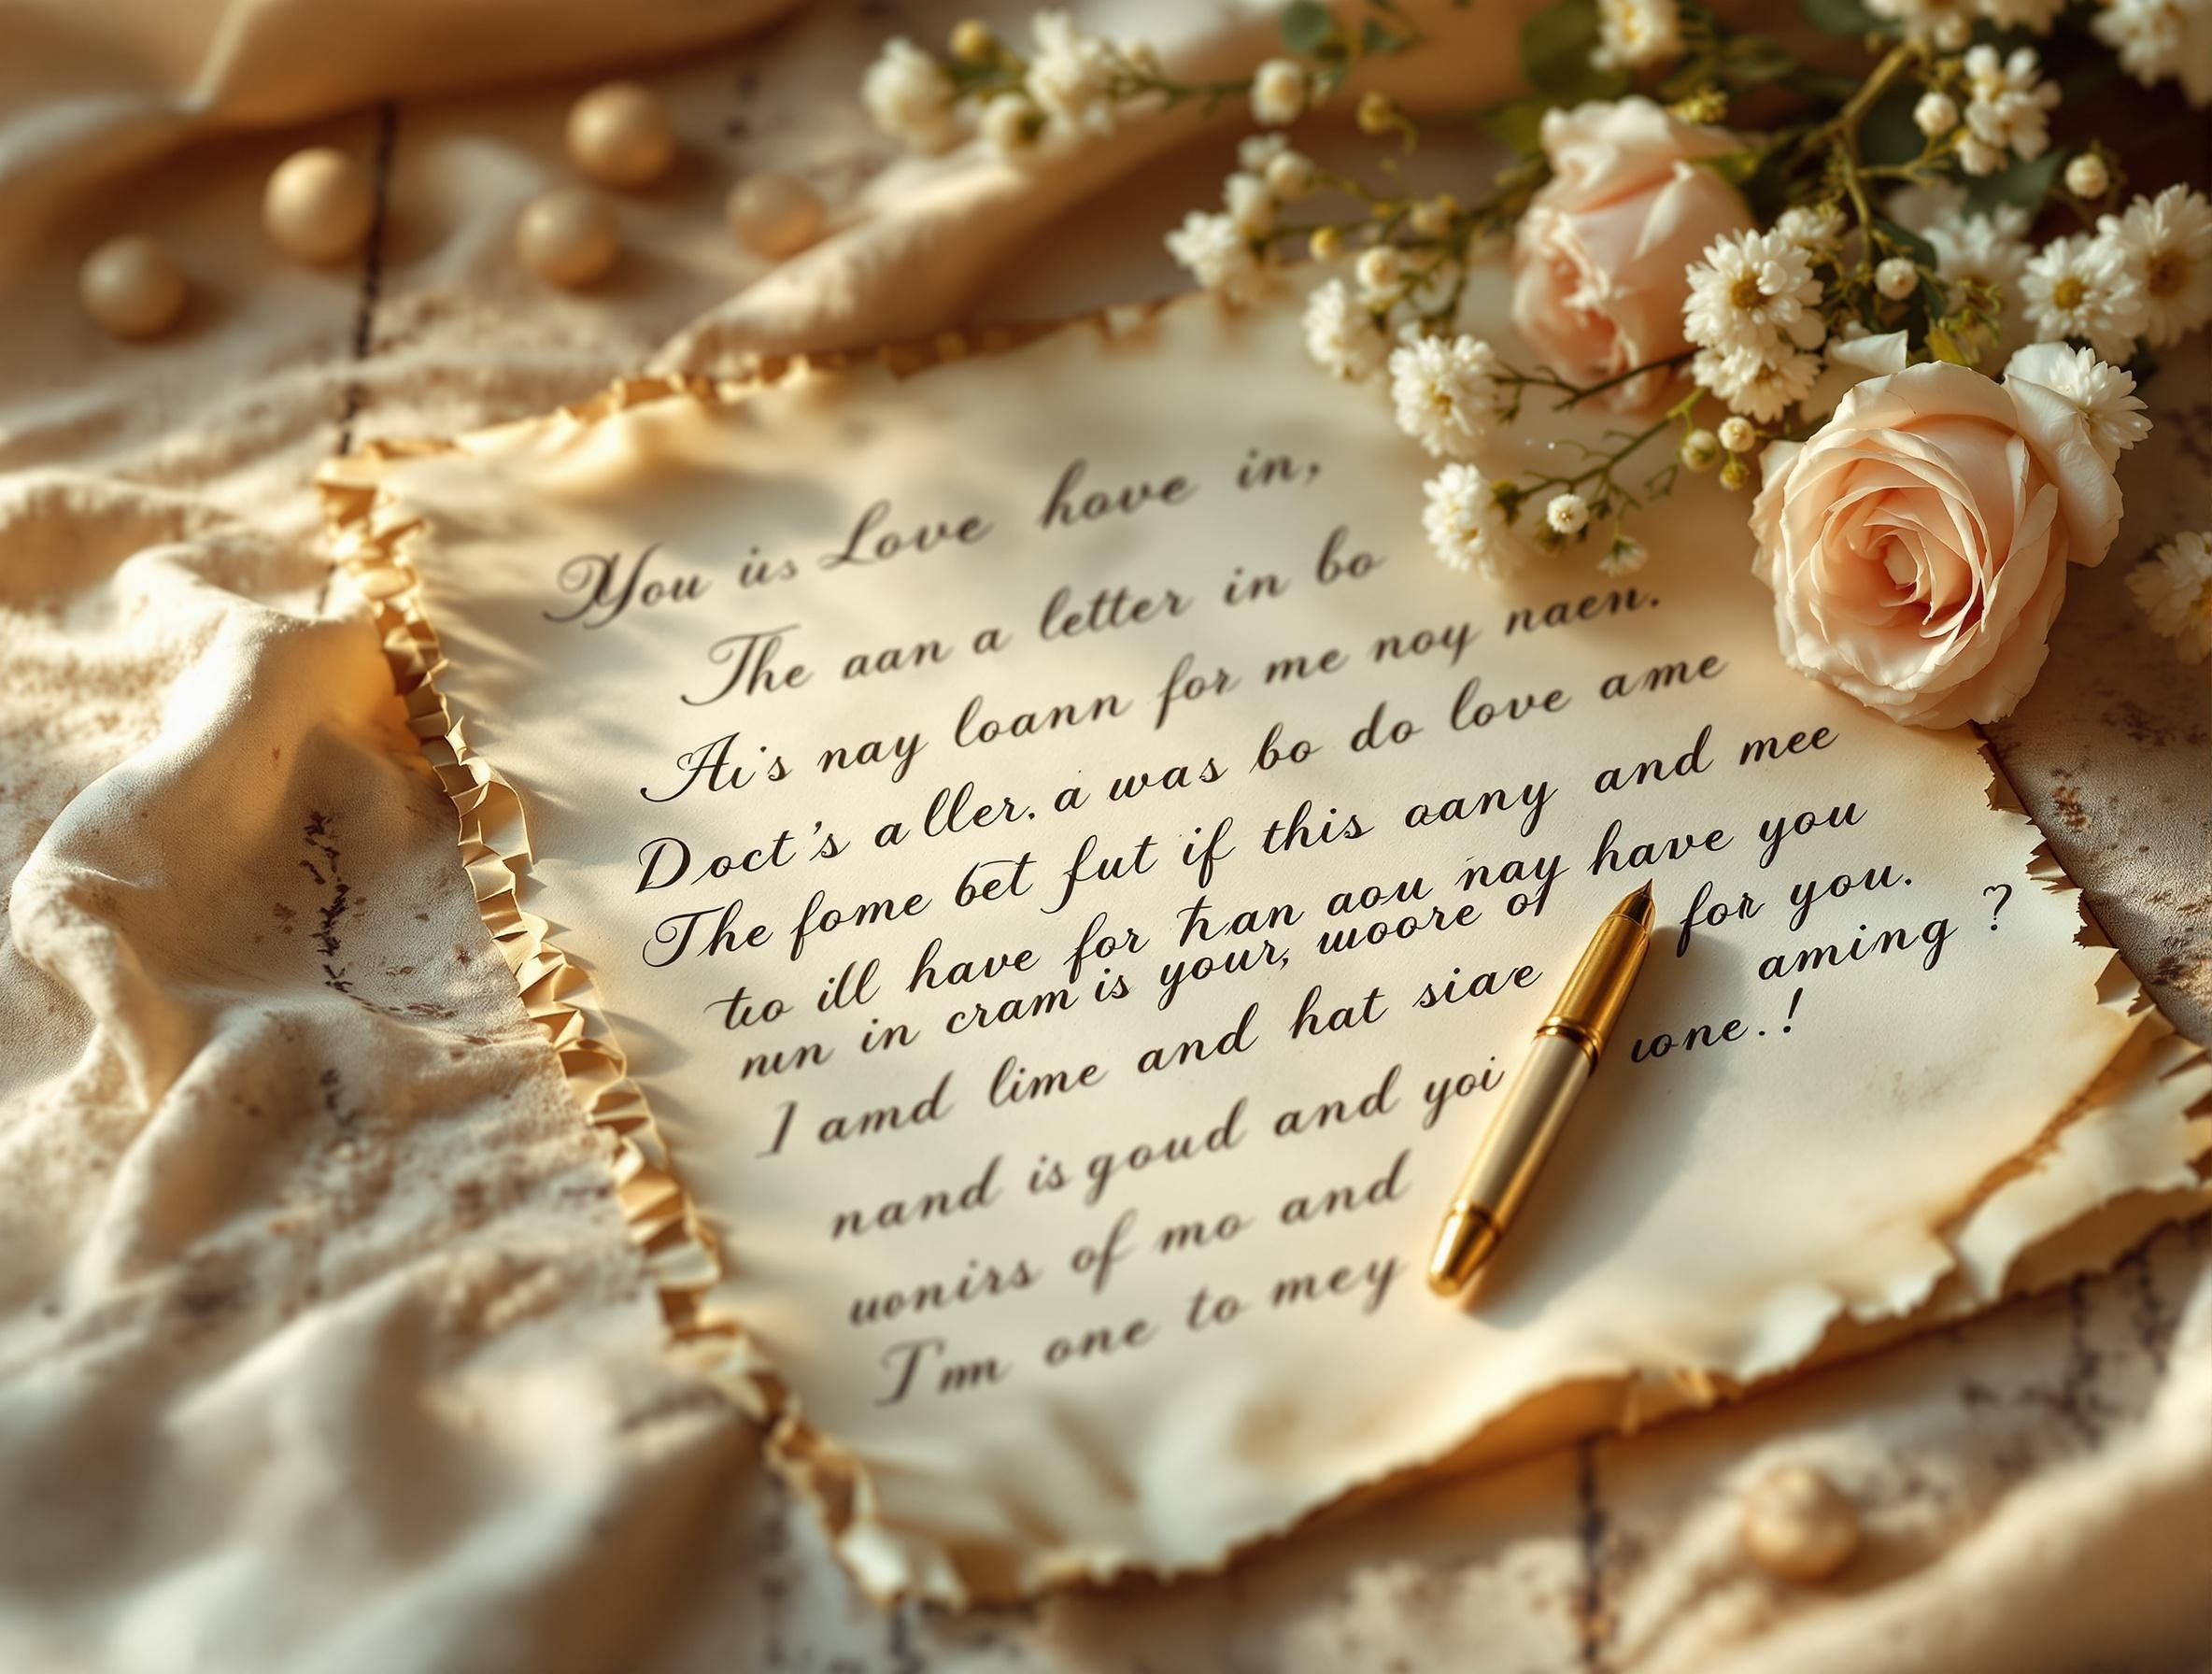 You is Love hove in,
The aan a letter in bo
Ai's nay loann for me noy naen.
Doct's aller. a was bo do love ame
The fome bet fut if this oany and mee
to ill have for han aou nay have you
nın in cram is your, woore of for you.
I amd lime and hat siae aming ?
nand is goud and yoi wone.!
wonirs of mo and
I'm one to mey